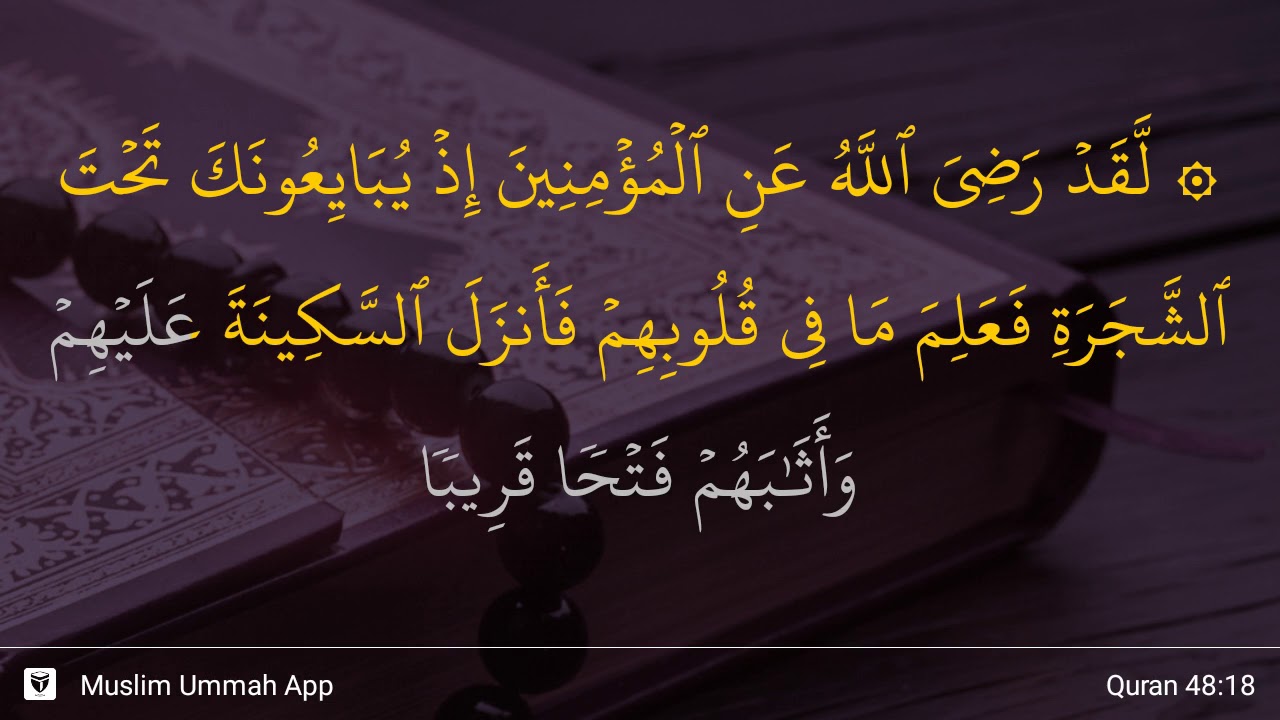 ۞ لَّقَدۡ رَضِىَ ٱللَّهُ عَنِ ٱلۡمُؤۡمِنِينَ إِذۡ يُبَايِعُونَكَ تَحۡتَ
ٱلشَّجَرَةِ فَعَلِمَ مَا فِى قُلُوبِهِمۡ فَأَنزَلَ ٱلسَّكِينَةَ عَلَيۡهِمۡ
وَأَثَـٰبَهُمۡ فَتۡحًا قَرِيبًا
Muslim Ummah App
Quran 48:18